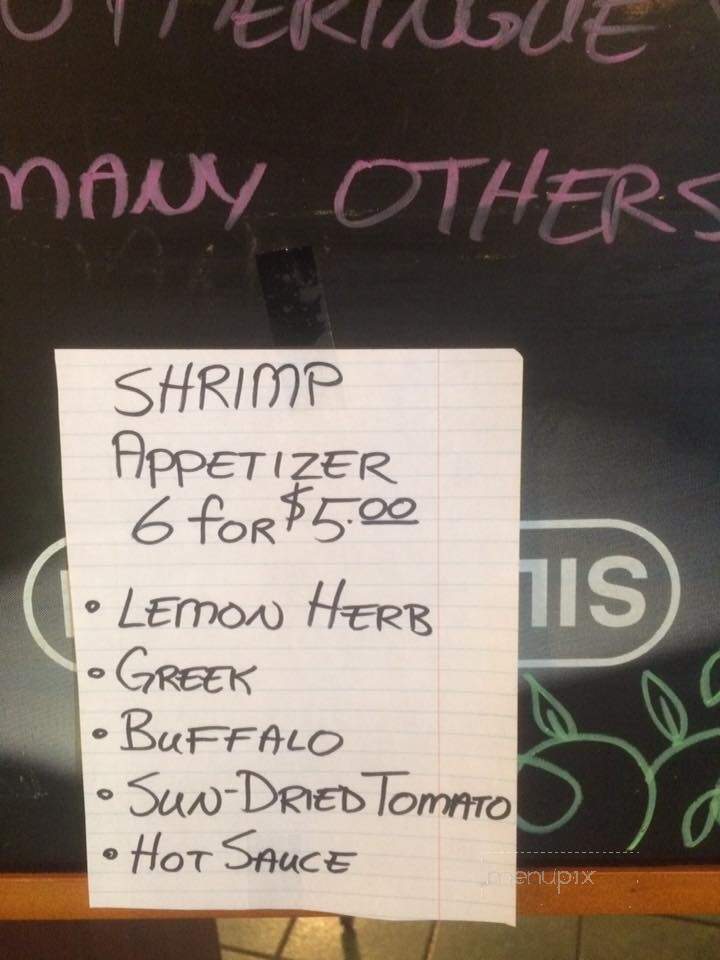 MANY OTHERS
SHRIMP
APPETIZER
6 FOR $5.00
• LEMON HERB
• GREEK
• BUFFALO
• SUN-DRIED TOMATO
• HOT SAUCE
menupix